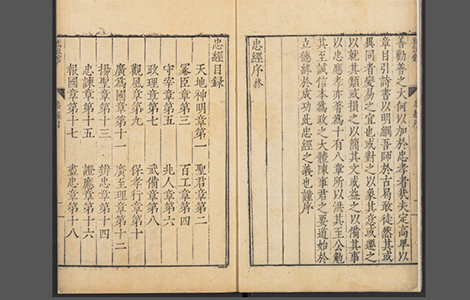 善勸善之大何以加於忠孝者哉夫定高卑以
章目引詩書以明綱吾師於古曷敢徒然其或
異同者變易之宜也或對之以象其意或遷之
以就其類或損之以簡其文或益之以備其事
以忠應孝亦著為十有八章所以洪其至公勉
其至誠信本為政之大體陳事君之要道始於
立德終於成功此忠經之義也謹序
忠經序終
忠經目録
天地神明章第一
聖君章第二
冢臣章第三
百工章第四
守宰章第五
兆人章第六
政理章第七
武備章第八
觀風章第九
保孝行章第十
廣為國章第十一
廣至理章第十二
揚聖章第十三
辨忠章第十四
忠諫章第十五
證應章第十六
報國章第十七
盡忠章第十八